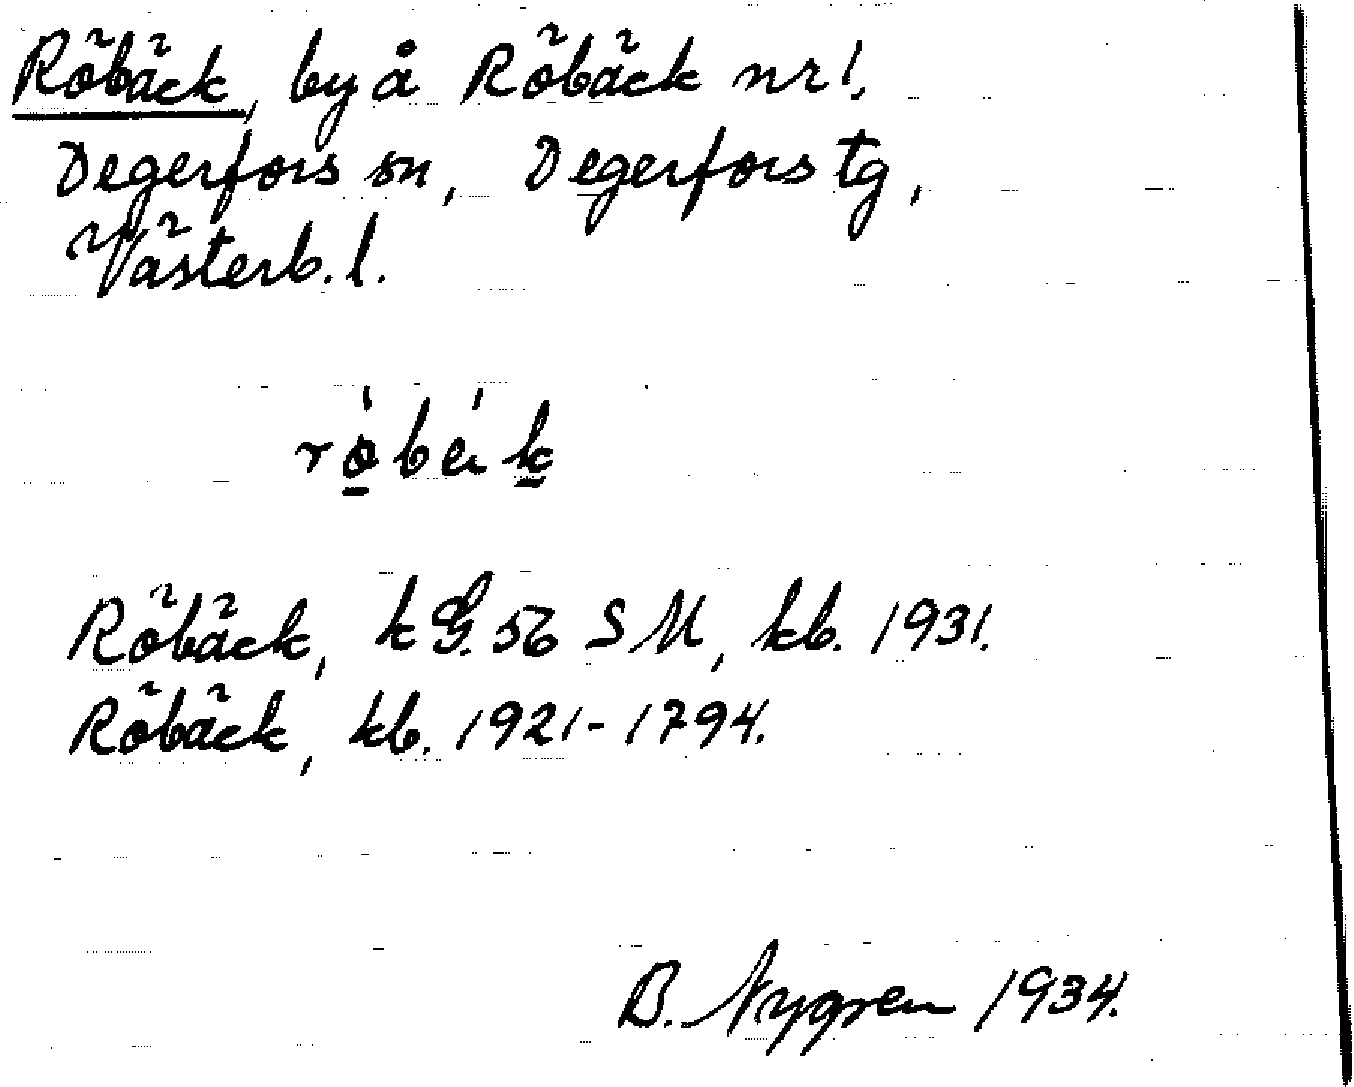 Röbäck, by å Röbäck nr 1.
Degerfors sn, Degerfors tg,
Västerb. l.
Röbäck, k G. 56 S M, kb. 1931.
Röbäck, kb. 1921-1794.
B. Nygren 1934.